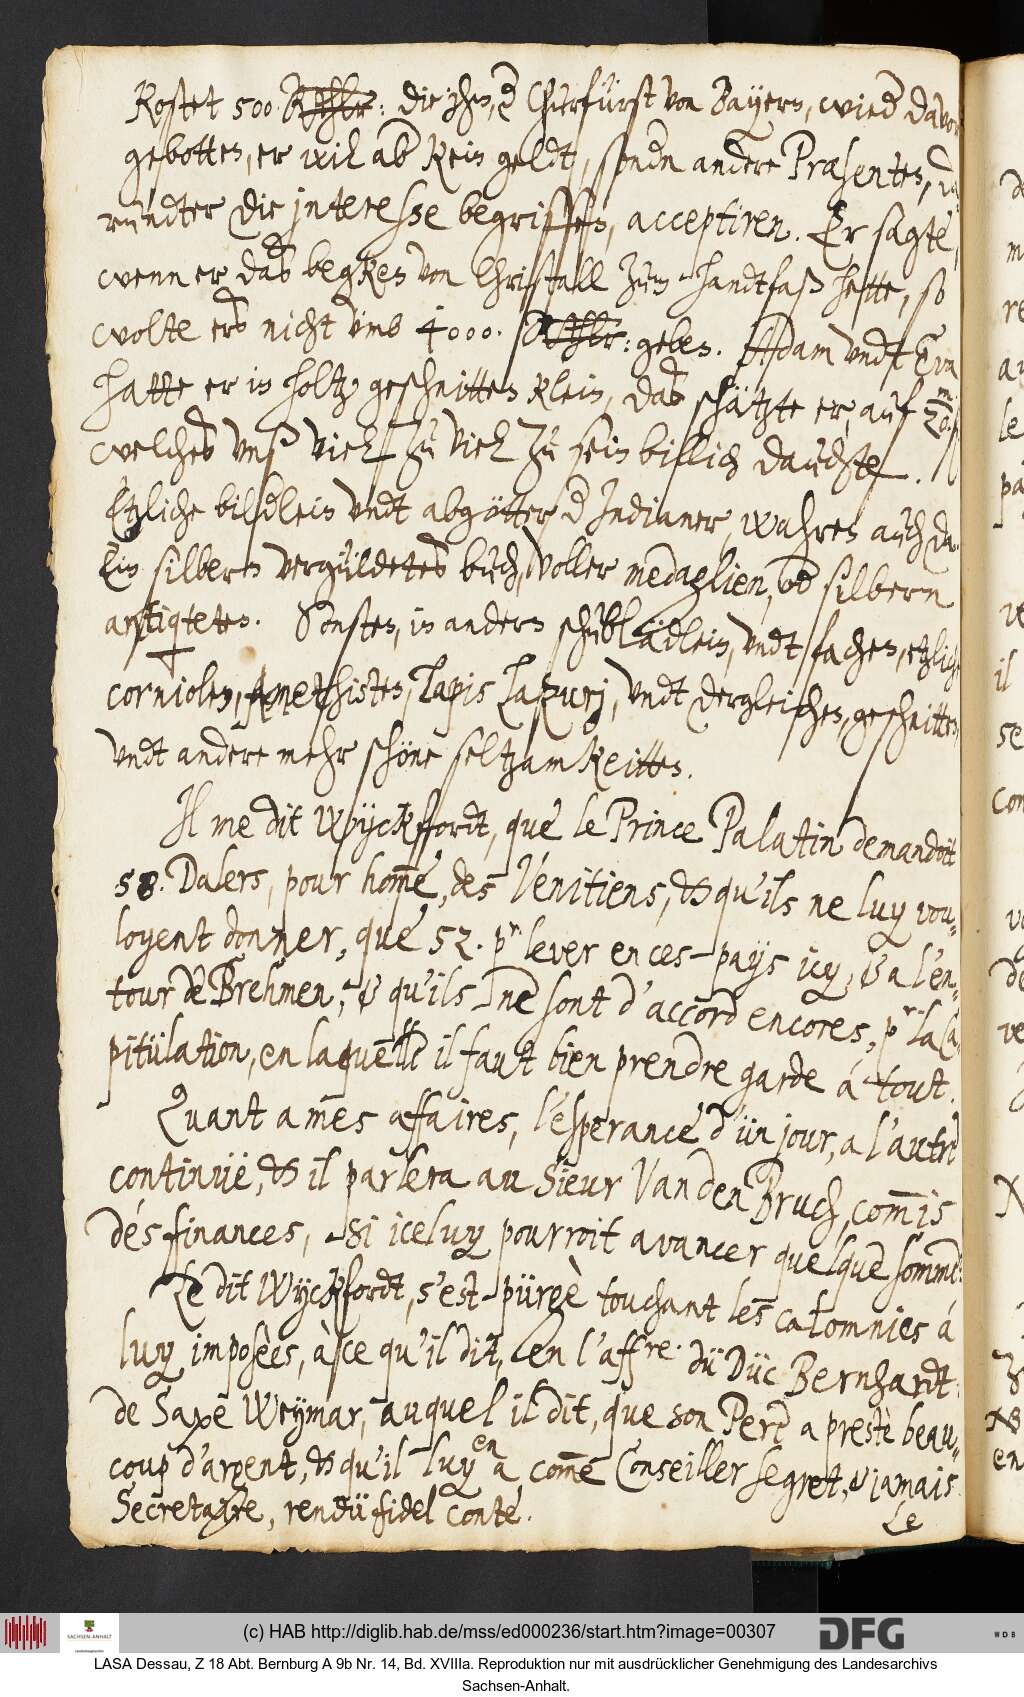 Kostet 500 Rthlr: die ihm, d Churfürst von Bayern, wied davor
gebotten, er will ab kein geldt, sondn andere Præsentes, da
rundter die jnteresse begriffen, acceptiren. Er sagte,
wenn er das begken von Christall zum handtfaß hette, so
wolte ers nicht umb 4000. Rthlr: geben. Adam undt Eva
hatte er in holtz geschnitten klein, das schätzte er, auf
welches unß viel zu viel zu sein billich dauchte.
Etzliche bildlein undt abgötter d Indianer, wahren auch da.
Ein silbern vergüldetes buch, voller medaglien, od silbern
antiqteten. Sonsten, in andern schublädlein, undt fachen, etzliche
corniolen, Amethisten, Lapis Lazurj, undt dergleichen, geschnitten,
undt andere mehr schöne seltzamkeitten.
Il me dit Wyckffordt, que le Prince Palatin demandoit
58. Dalers, pour home, des Venitiens, & qu'ils ne luy vou-
loyent donner, que 52. pr lever en ces pays icy, & a l'en-
tour de Brehmen, & qu'ils ne sont d'accord encores, pr la Ca-
pitülation, en laquelle il faut bien prendre garde á tout.
Quant a mes affaires, l'esperance d'ün jour, a l'autre
continuë, & il parlera au Sieur Van den Bruch, comis
dés finances, si iceluy pourroit avancer quelque somme.
Le dit Wyckffordt, s'est pürgè touchant les calomnies á
luy imposèes, à ce qu'il dit, en l'affre. dü Düc Bernhardt
de Saxe Weymar, auquel il dit, que son Pere a prestè beau-
coup d'argent, & qu'il luy en a come Conseiller segret, & jamais
Secretayre, rendü fidel conte.
Le
(c) HAB http://diglib.hab.de/mss/ed000236/start.htm?image=00307
DFG
WDB
SACHSEN-ANHALT
LASA Dessau, Z 18 Abt. Bernburg A 9b Nr. 14, Bd. XVIIIa. Reproduktion nur mit ausdrücklicher Genehmigung des Landesarchivs
Sachsen-Anhalt.